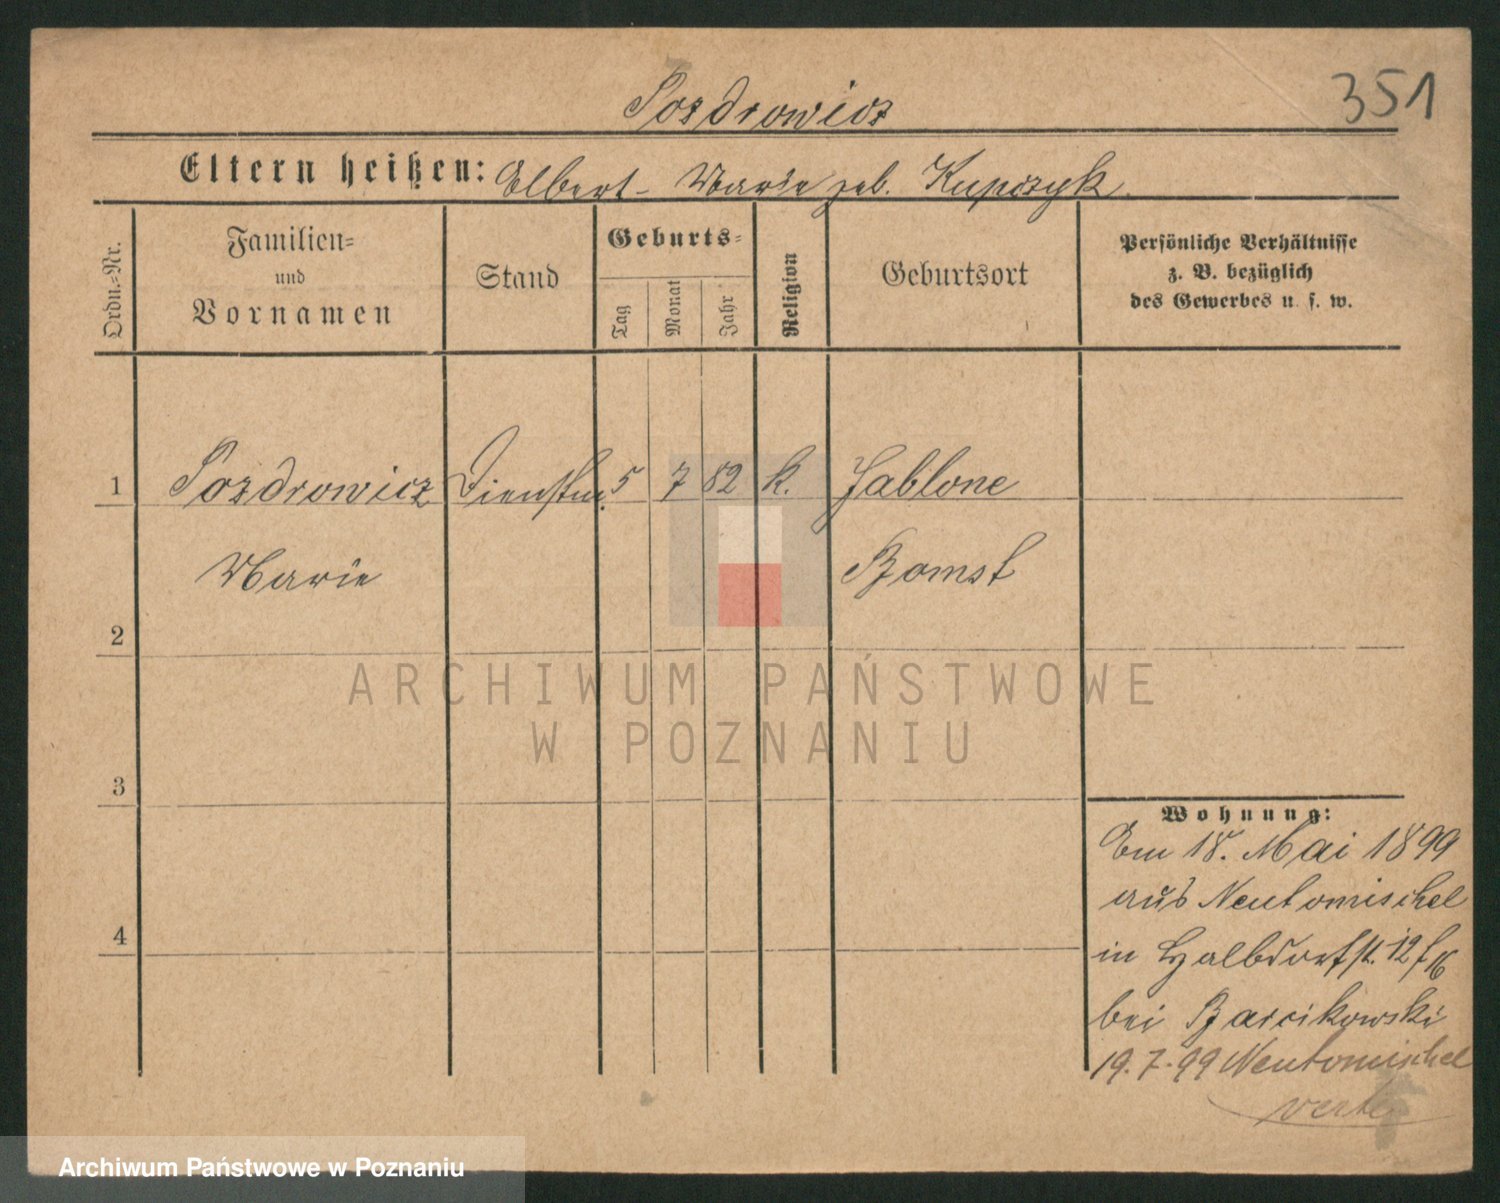 Pozdrowicz
351
Eltern heißen: Albert - Marie geb. Kupczyk.
Ordn.-Nr.
Familien-
und
Vornamen
Stand
Geburts-
Tag
Monat
Jahr
Religion
Geburtsort
Persönliche Verhältnisse
z. B. bezüglich
des Gewerbes u. s. w.
1 Pozdrowicz Dienstm. 5 7 82 k. Jablone
Marie Bomst
2
ARCHIWUM PAŃSTWOWE
W POZNANIU
3
Wohnung:
Am 18. Mai 1899
aus Neutomischel
in Halbdorfst. 12/16
4
bei Barcikowski
19.7.99 Neutomischel
verte
Archiwum Państwowe w Poznaniu